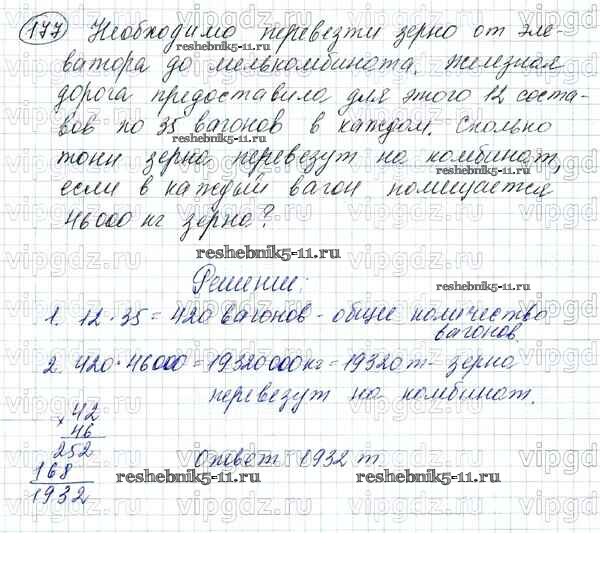 177 Необходимо перевезти зерно от эле-
ватора до мелькомбината. Железная
дорога предоставила для этого 12 соста-
вов по 35 вагонов в каждом. Сколько
тонн зерна перевезут на комбинат,
если в каждый вагон помещается
46000 кг зерна?
Решение:
1. 12 · 35 = 420 вагонов - общее количество
вагонов.
2. 420 · 46000 = 19320000 кг = 19320 т - зерна
перевезут на комбинат.
× 42
46
252
168
1932
Ответ 1932 т
reshebnik5-11.ru
reshebnik5-11.ru
reshebnik5-11.ru
reshebnik5-11.ru
reshebnik5-11.ru
reshebnik5-11.ru
vipgdz.ru